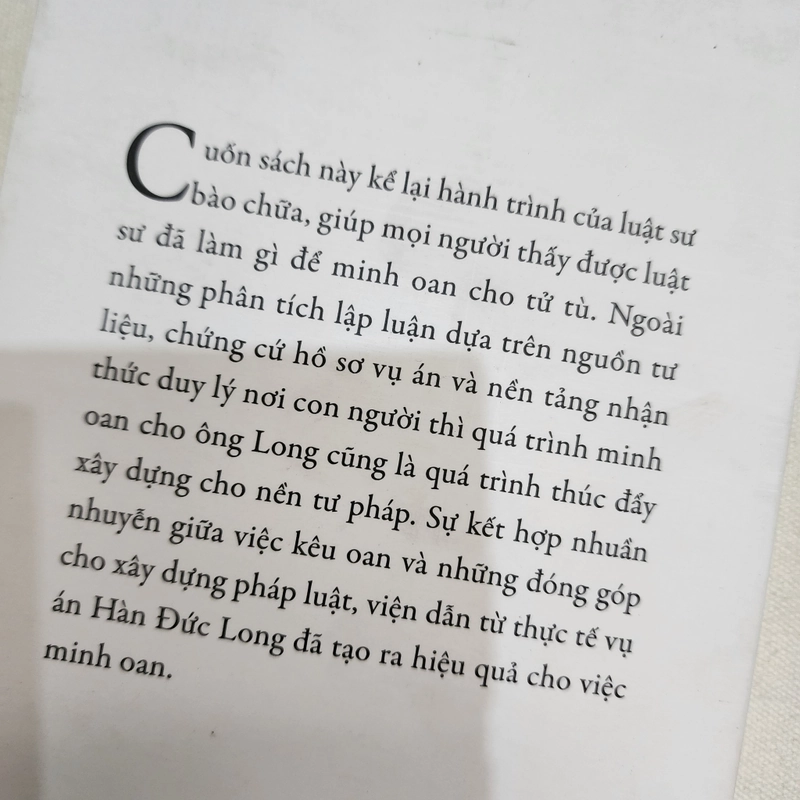 Cuốn sách này kể lại hành trình của luật sư
bào chữa, giúp mọi người thấy được luật
sư đã làm gì để minh oan cho tử tù. Ngoài
những phân tích lập luận dựa trên nguồn tư
liệu, chứng cứ hồ sơ vụ án và nền tảng nhận
thức duy lý nơi con người thì quá trình minh
oan cho ông Long cũng là quá trình thúc đẩy
xây dựng cho nền tư pháp. Sự kết hợp nhuần
nhuyễn giữa việc kêu oan và những đóng góp
cho xây dựng pháp luật, viện dẫn từ thực tế vụ
án Hàn Đức Long đã tạo ra hiệu quả cho việc
minh oan.